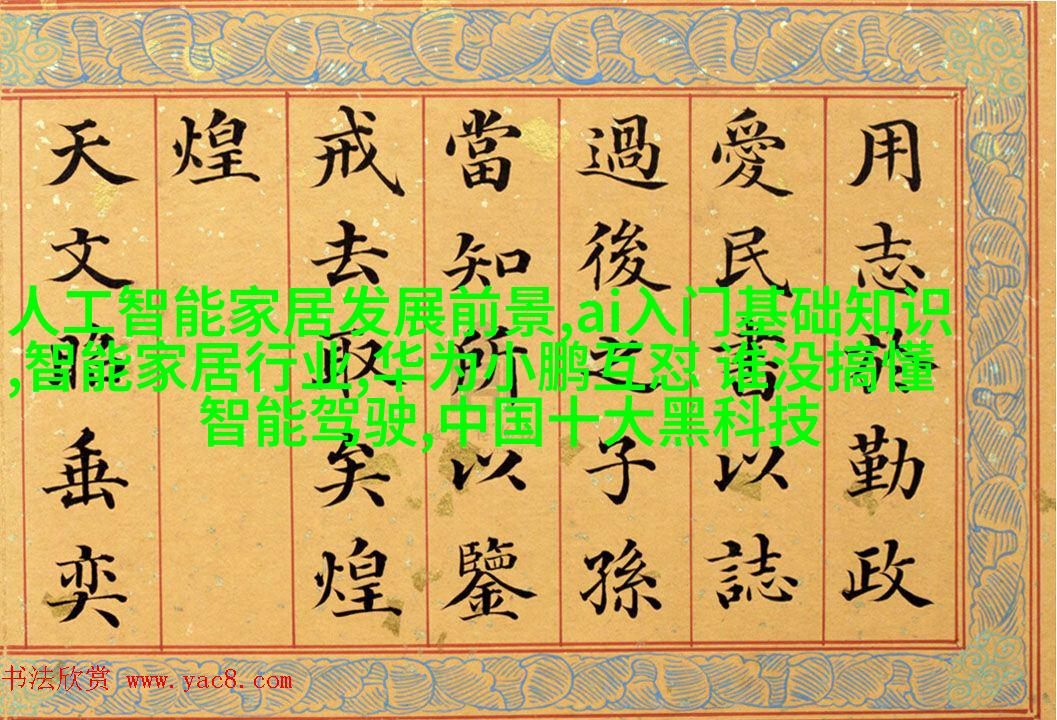 用志勤政
愛民書以誌
過後之子孫
當知所以鑒
戒去取矣煌
煌
天文昭垂奕
人工智能家居发展前景,ai入门基础知识
,智能家居行业,华为小鹏互怼 谁没搞懂
智能驾驶,中国十大黑科技
书法欣赏 www.yac8.com